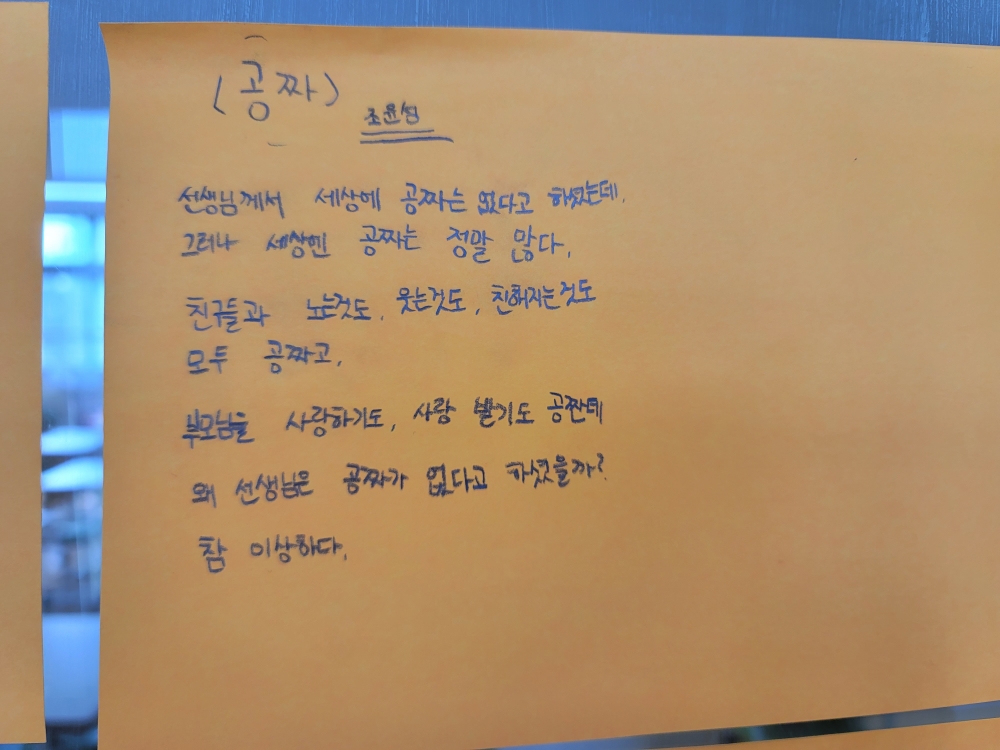 (공짜)
조윤성
선생님께서 세상에 공짜는 없다고 하셨는데,
그러나 세상엔 공짜는 정말 많다.
친구들과 노는것도, 웃는것도, 친해지는것도
모두 공짜고,
부모님을 사랑하기도, 사랑 받기도 공짠데
왜 선생님은 공짜가 없다고 하셨을까?
참 이상하다.